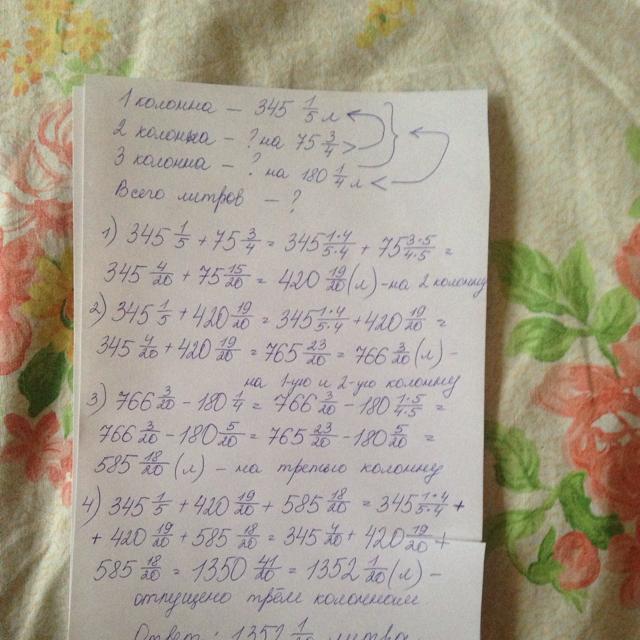 1 колонна – 345 1/5 л
2 колонна – ? на 75 3/4 >
3 колонна – ? на 180 1/4 л <
Всего литров – ?
1) 345 1/5 + 75 3/4 = 345 1·4/5·4 + 75 3·5/4·5 =
345 4/20 + 75 15/20 = 420 19/20 (л) – на 2 колонну
2) 345 1/5 + 420 19/20 = 345 1·4/5·4 + 420 19/20 =
345 4/20 + 420 19/20 = 765 23/20 = 766 3/20 (л) –
на 1-ую и 2-ую колонну
3) 766 3/20 – 180 1/4 = 766 3/20 – 180 1·5/4·5 =
766 3/20 – 180 5/20 = 765 23/20 – 180 5/20 =
585 18/20 (л) – на третью колонну
4) 345 1/5 + 420 19/20 + 585 18/20 = 345 1·4/5·4 +
+ 420 19/20 + 585 18/20 = 345 4/20 + 420 19/20 +
585 18/20 = 1350 41/20 = 1352 1/20 (л) –
отпущено трём колоннам
Ответ: 1352 литра